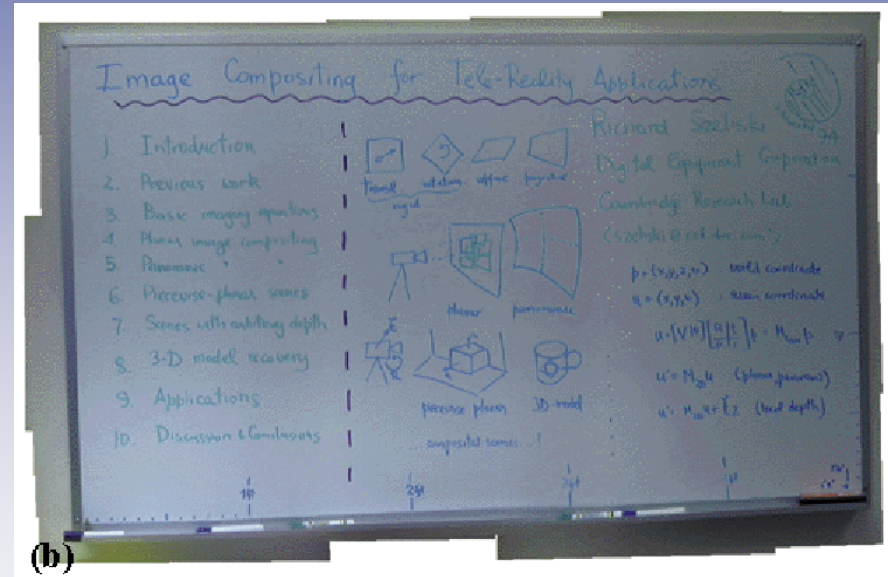 Image Compositing for Tele-Reality Applications
1. Introduction
2. Previous work
3. Basic imaging equations
4. Planar image compositing
5. Panoramic " "
6. Piecewise-planar scenes
7. Scenes with arbitrary depth
8. 3-D model recovery
9. Applications
10. Discussion & Conclusions
rotation affine projective
rigid
planar panoramic
t
R
piecewise planar 3D model
composited scenes...?
Richard Szeliski
Digital Equipment Corporation
Cambridge Research Lab
94
: world coordinate
u = (x,y,w) : screen coordinate
(local depth)
1ft 2ft 3ft 4ft
(b)